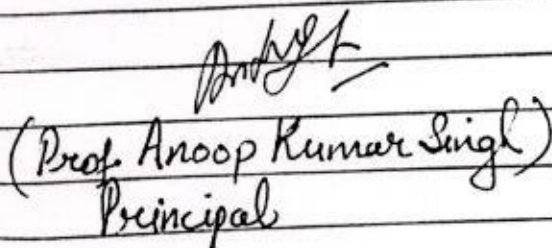 (Prof. Anoop Kumar Singh)
Principal